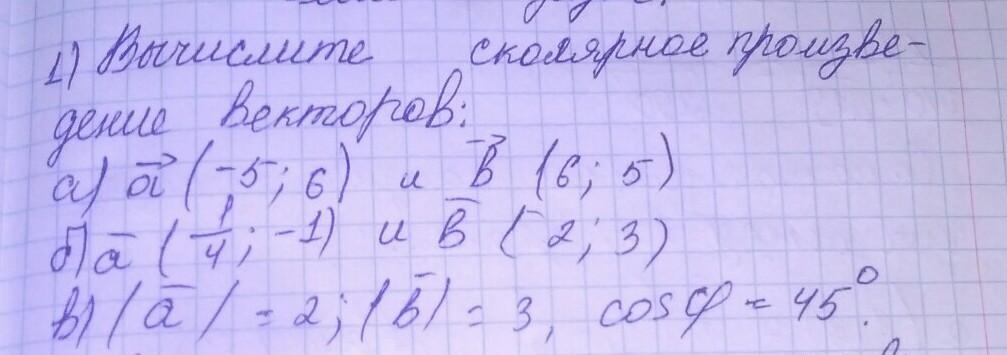 1) Вычислите скалярное произве-
дение векторов:
а) a⃗ (-5; 6) и b⃗ (6; 5)
б) a̅ (1/4; -1) и b̅ (2; 3)
в) |a̅| = 2; |b̅| = 3, cos φ = 45°.